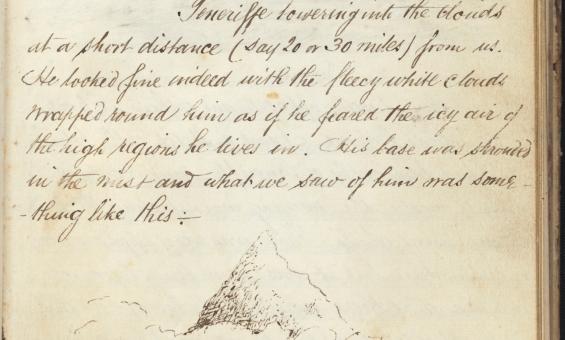 Teneriffe towering into the clouds
at a short distance (say 20 or 30 miles) from us.
He looked fine indeed with the fleecy white clouds
wrapped round him as if he feared the icy air of
the high regions he lives in. His base was shrouded
in the mist and what we saw of him was some-
-thing like this :-